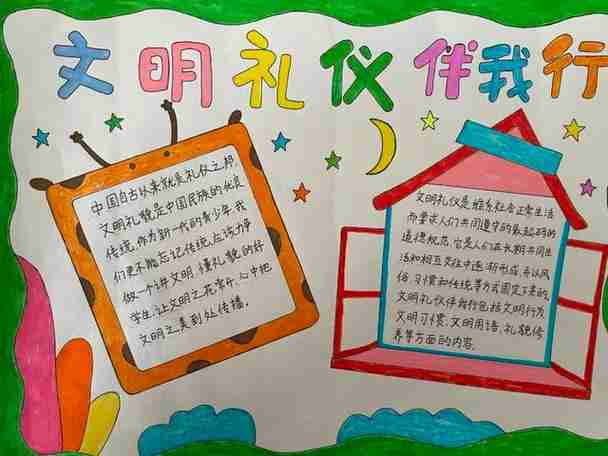 文明礼仪伴我行
中国自古以来就是礼仪之邦,
文明礼貌是中国民族的优良
传统,作为新一代的青少年,我
们更不能忘记传统,应该力争
做一个讲文明、懂礼貌的好
学生,让文明之花常开,心中把
文明之美到处传播。
文明礼仪是维系社会正常生活
而要求人们共同遵守的最起码的
道德规范,它是人们在长期共同生
活和相互交往中逐渐形成,并以风
俗、习惯和传统等方式固定下来的。
文明礼仪伴我行包括文明行为
文明习惯、文明用语、礼貌修
养等方面的内容.